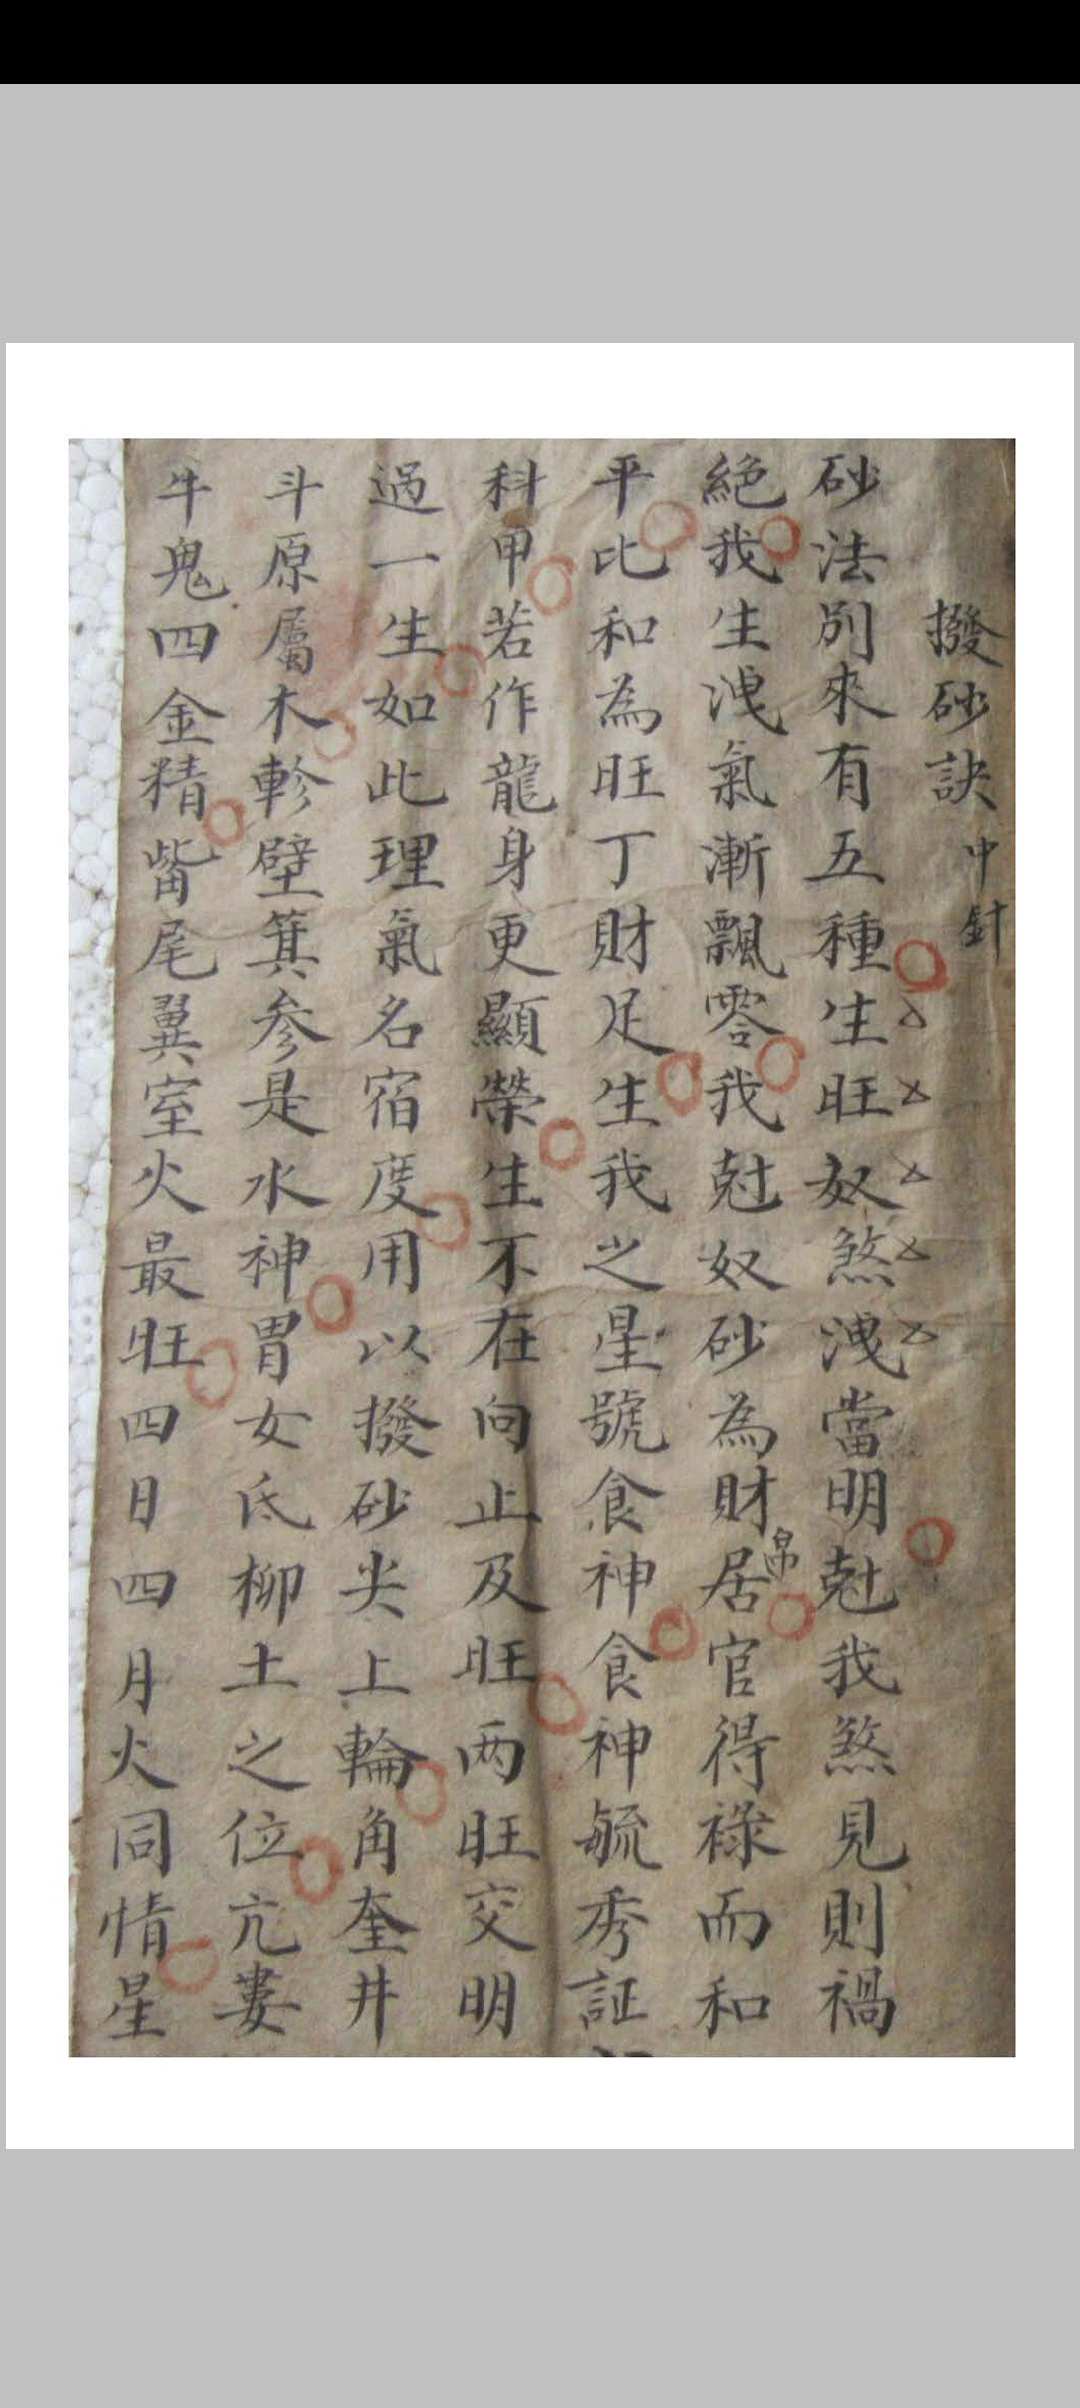 撥砂訣 中針
砂法別來有五種生旺奴煞洩當明尅我煞見則禍
絕我生洩氣漸飄零我尅奴砂為財帛居官得祿而和
平比和為旺丁財足生我之星號食神食神毓秀証
科甲若作龍身更顯榮生不在向止及旺两旺交明
過一生如此理氣名宿度用以撥砂尖上輪角奎井
斗原屬木軫壁箕参是水神胃女氐柳土之位亢婁
牛鬼四金精觜尾翼室火最旺四日四月火同情星